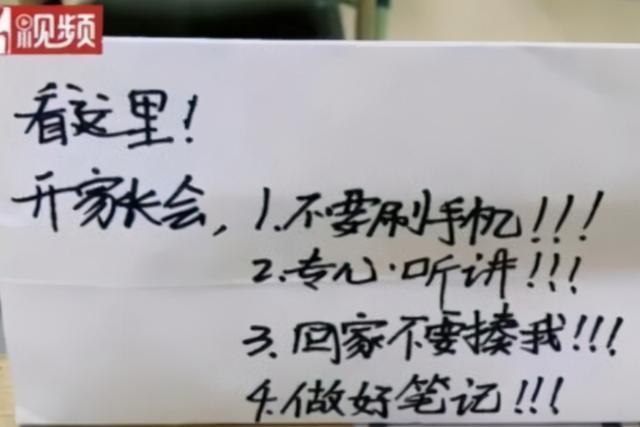 视频
看这里!
开家长会,1.不要刷手机!!!
2.专心听讲!!!
3.回家不要揍我!!!
4.做好笔记!!!